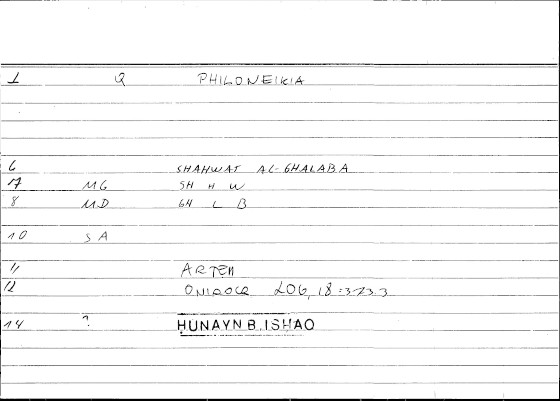 1 Q PHILONEIKIA
6 SHAHWAT AL-GHALABA
7 MG SH H W
8 MD GH L B
10 SA
11 ARTEM
12 ONIROCR 206, 18 = 373.3
14 ? HUNAYN B. ISHAQ